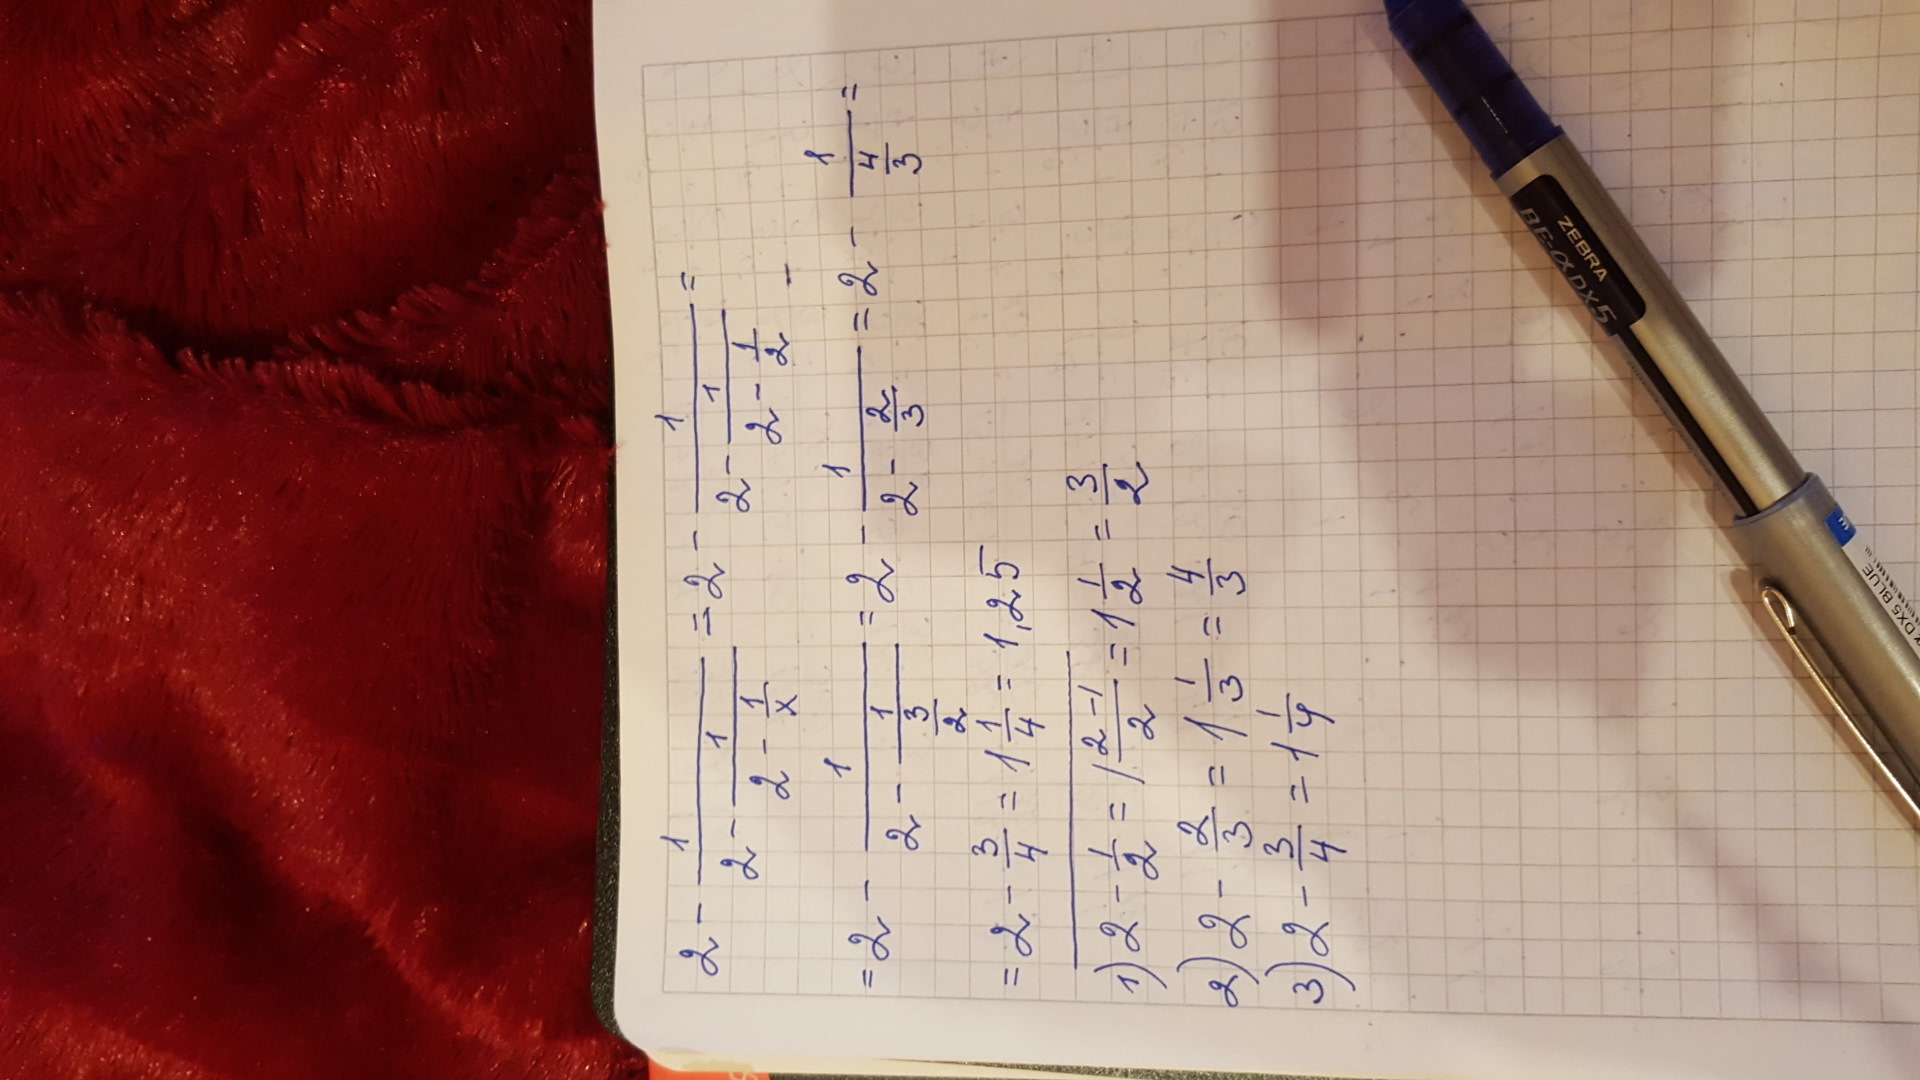 2 - 1/(2 - 1/(2 - 1/x)) = 2 - 1/(2 - 1/(2 - 1/2)) =
= 2 - 1/(2 - 1/(3/2)) = 2 - 1/(2 - 2/3) = 2 - 1/(4/3) =
= 2 - 3/4 = 1 1/4 = 1,25
1) 2 - 1/2 = 1 (2-1)/2 = 1 1/2 = 3/2
2) 2 - 2/3 = 1 1/3 = 4/3
3) 2 - 3/4 = 1 1/4
ZEBRA
BE-α DX5
DX5 BLUE